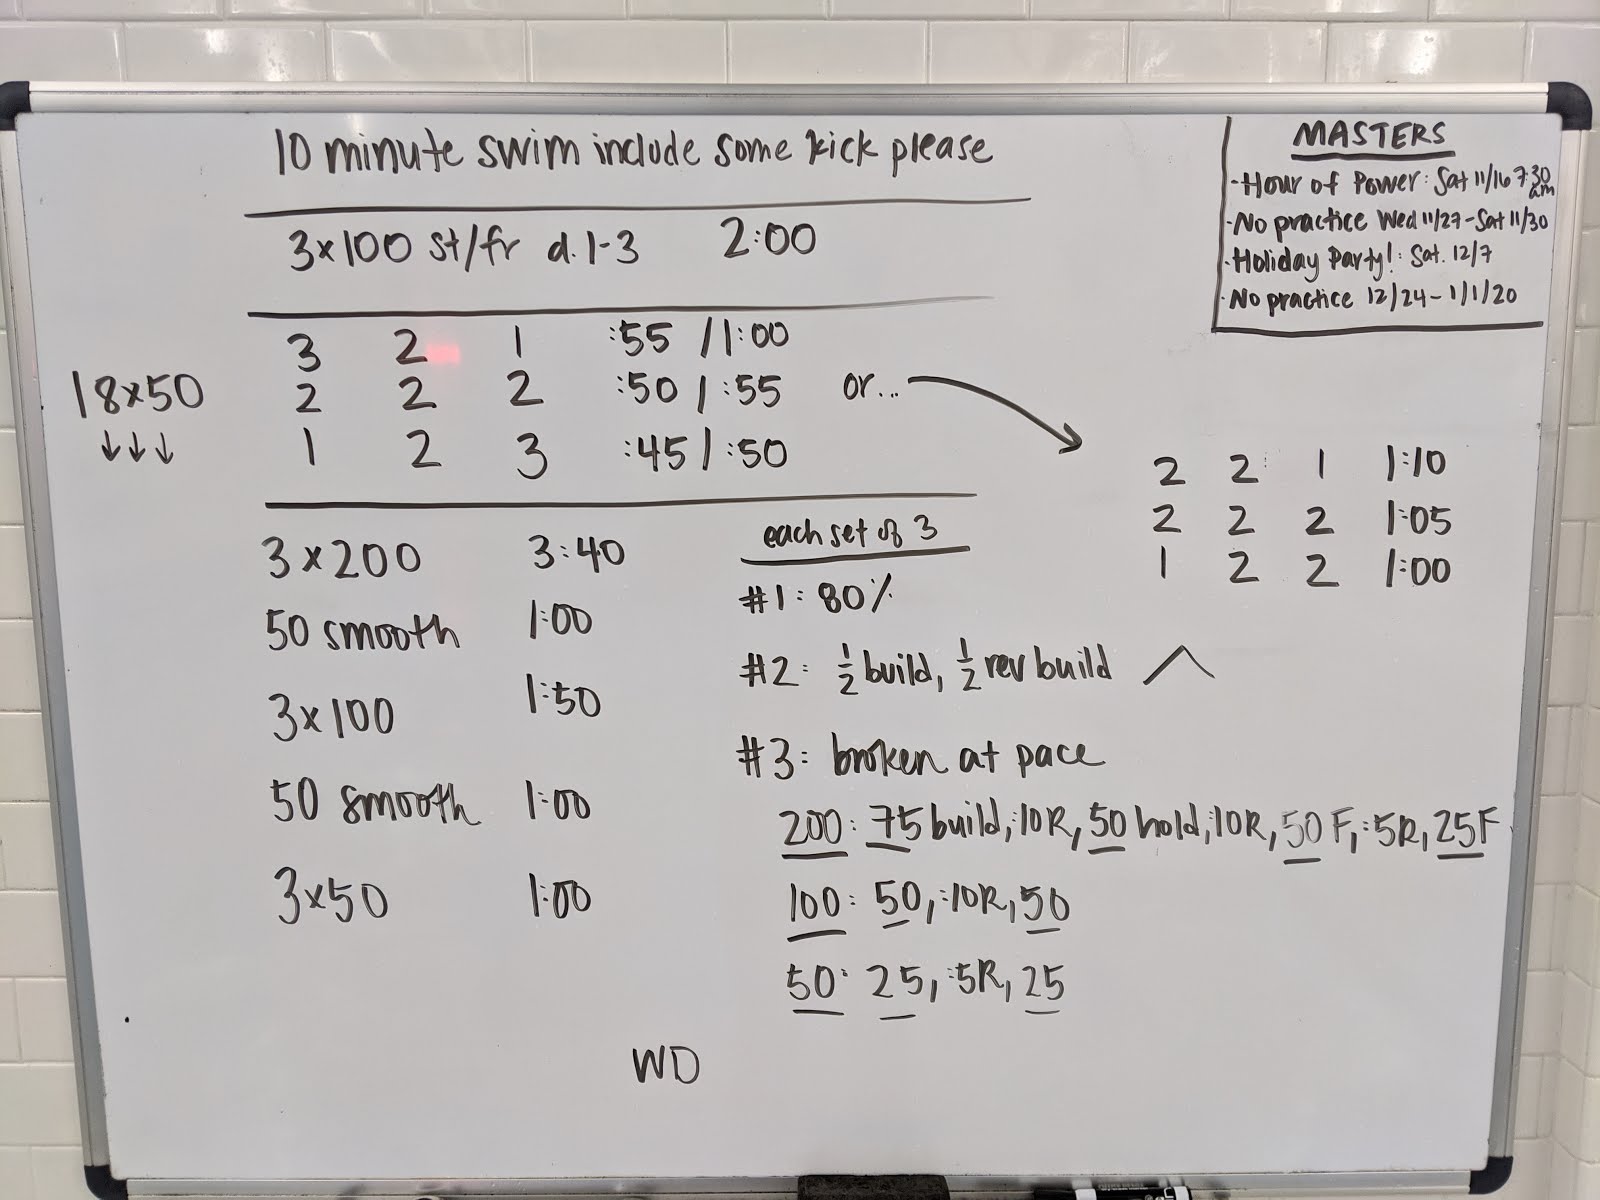 10 minute swim include some kick please
3x100 st/fr d.1-3 2:00
18x50
↓↓↓
3 2 1 :55 / 1:00
2 2 2 :50 / :55 or...
1 2 3 :45 / :50
2 2 1 1:10
2 2 2 1:05
1 2 2 1:00
3 x 200 3:40
50 smooth 1:00
3x100 1:50
50 smooth 1:00
3x50 1:00
each set of 3
#1: 80%
#2: 1/2 build, 1/2 rev build
#3: broken at pace
200: 75 build, :10R, 50 hold, :10R, 50 F, :5R, 25F
100: 50, :10R, 50
50: 25, :5R, 25
WD
MASTERS
-Hour of Power: Sat 11/16 7:30 am
-No practice Wed 11/27-Sat 11/30
·Holiday Party!: Sat. 12/7
·No practice 12/24-1/1/20